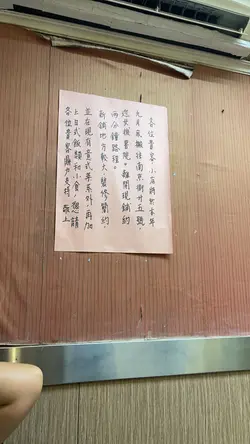 各位貴客，小店將於今年
九月底搬往南京街廿五號
恆豐樓寶院。離開現鋪約
两分鐘路程。
新鋪地方較大，裝修簡約
並在現有意式菜系外，再加
上日式飯類和小食，懇請
各位貴客鼎力支持，敬上